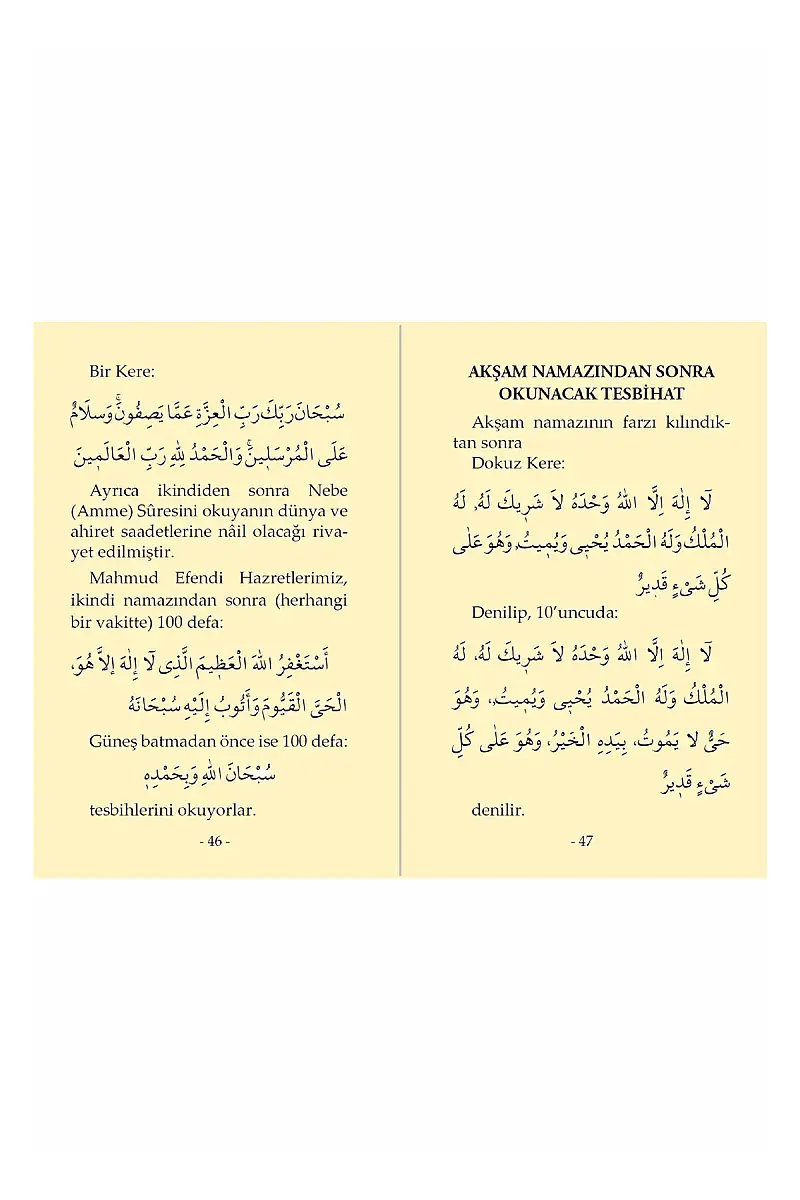 Bir Kere:
سُبْحَانَ رَبِّكَ رَبِّ الْعِزَّةِ عَمَّا يَصِفُونَۚ وَسَلَامٌ
عَلَى الْمُرْسَلٖينَۚ وَالْحَمْدُ لِلّٰهِ رَبِّ الْعَالَمٖينَ
Ayrıca ikindiden sonra Nebe
(Amme) Sûresini okuyanın dünya ve
ahiret saadetlerine nâil olacağı riva-
yet edilmiştir.
Mahmud Efendi Hazretlerimiz,
ikindi namazından sonra (herhangi
bir vakitte) 100 defa:
أَسْتَغْفِرُ اللّٰهَ الْعَظٖيمَ الَّذِى لَٓا إِلٰهَ إِلاَّ هُوَ،
الْحَىَّ الْقَيُّومَ وَأَتُوبُ إِلَيْهِ سُبْحَانَهُ
Güneş batmadan önce ise 100 defa:
سُبْحَانَ اللّٰهِ وَبِحَمْدِهٖ
tesbihlerini okuyorlar.
- 46 -
AKŞAM NAMAZINDAN SONRA
OKUNACAK TESBİHAT
Akşam namazının farzı kılındık-
tan sonra
Dokuz Kere:
لَٓا إِلٰهَ اِلَّا اللّٰهُ وَحْدَهُ لاَ شَرٖيكَ لَهُ، لَهُ
الْمُلْكُ وَلَهُ الْحَمْدُ يُحْيٖى وَيُمٖيتُ، وَهُوَ عَلٰى
كُلِّ شَىْءٍ قَدٖيرٌ
Denilip, 10’uncuda:
لَٓا إِلٰهَ اِلَّا اللّٰهُ وَحْدَهُ لاَ شَرٖيكَ لَهُ، لَهُ
الْمُلْكُ وَلَهُ الْحَمْدُ يُحْيٖى وَيُمٖيتُ، وَهُوَ
حَىٌّ لا يَمُوتُ، بِيَدِهِ الْخَيْرُ، وَهُوَ عَلٰى كُلِّ
شَىْءٍ قَدٖيرٌ
denilir.
- 47